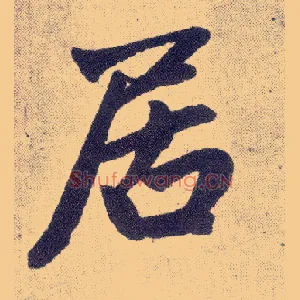 居
Shufawang.CN